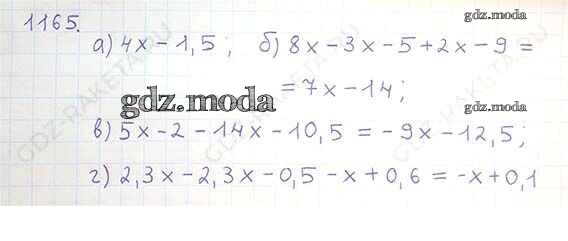 1165.
gdz.moda
а) 4x - 1,5; б) 8x - 3x - 5 + 2x - 9 =
= 7x - 14;
gdz.moda
в) 5x - 2 - 14x - 10,5 = -9x - 12,5;
г) 2,3x - 2,3x - 0,5 - x + 0,6 = -x + 0,1
GDZ-RAKETA.RU